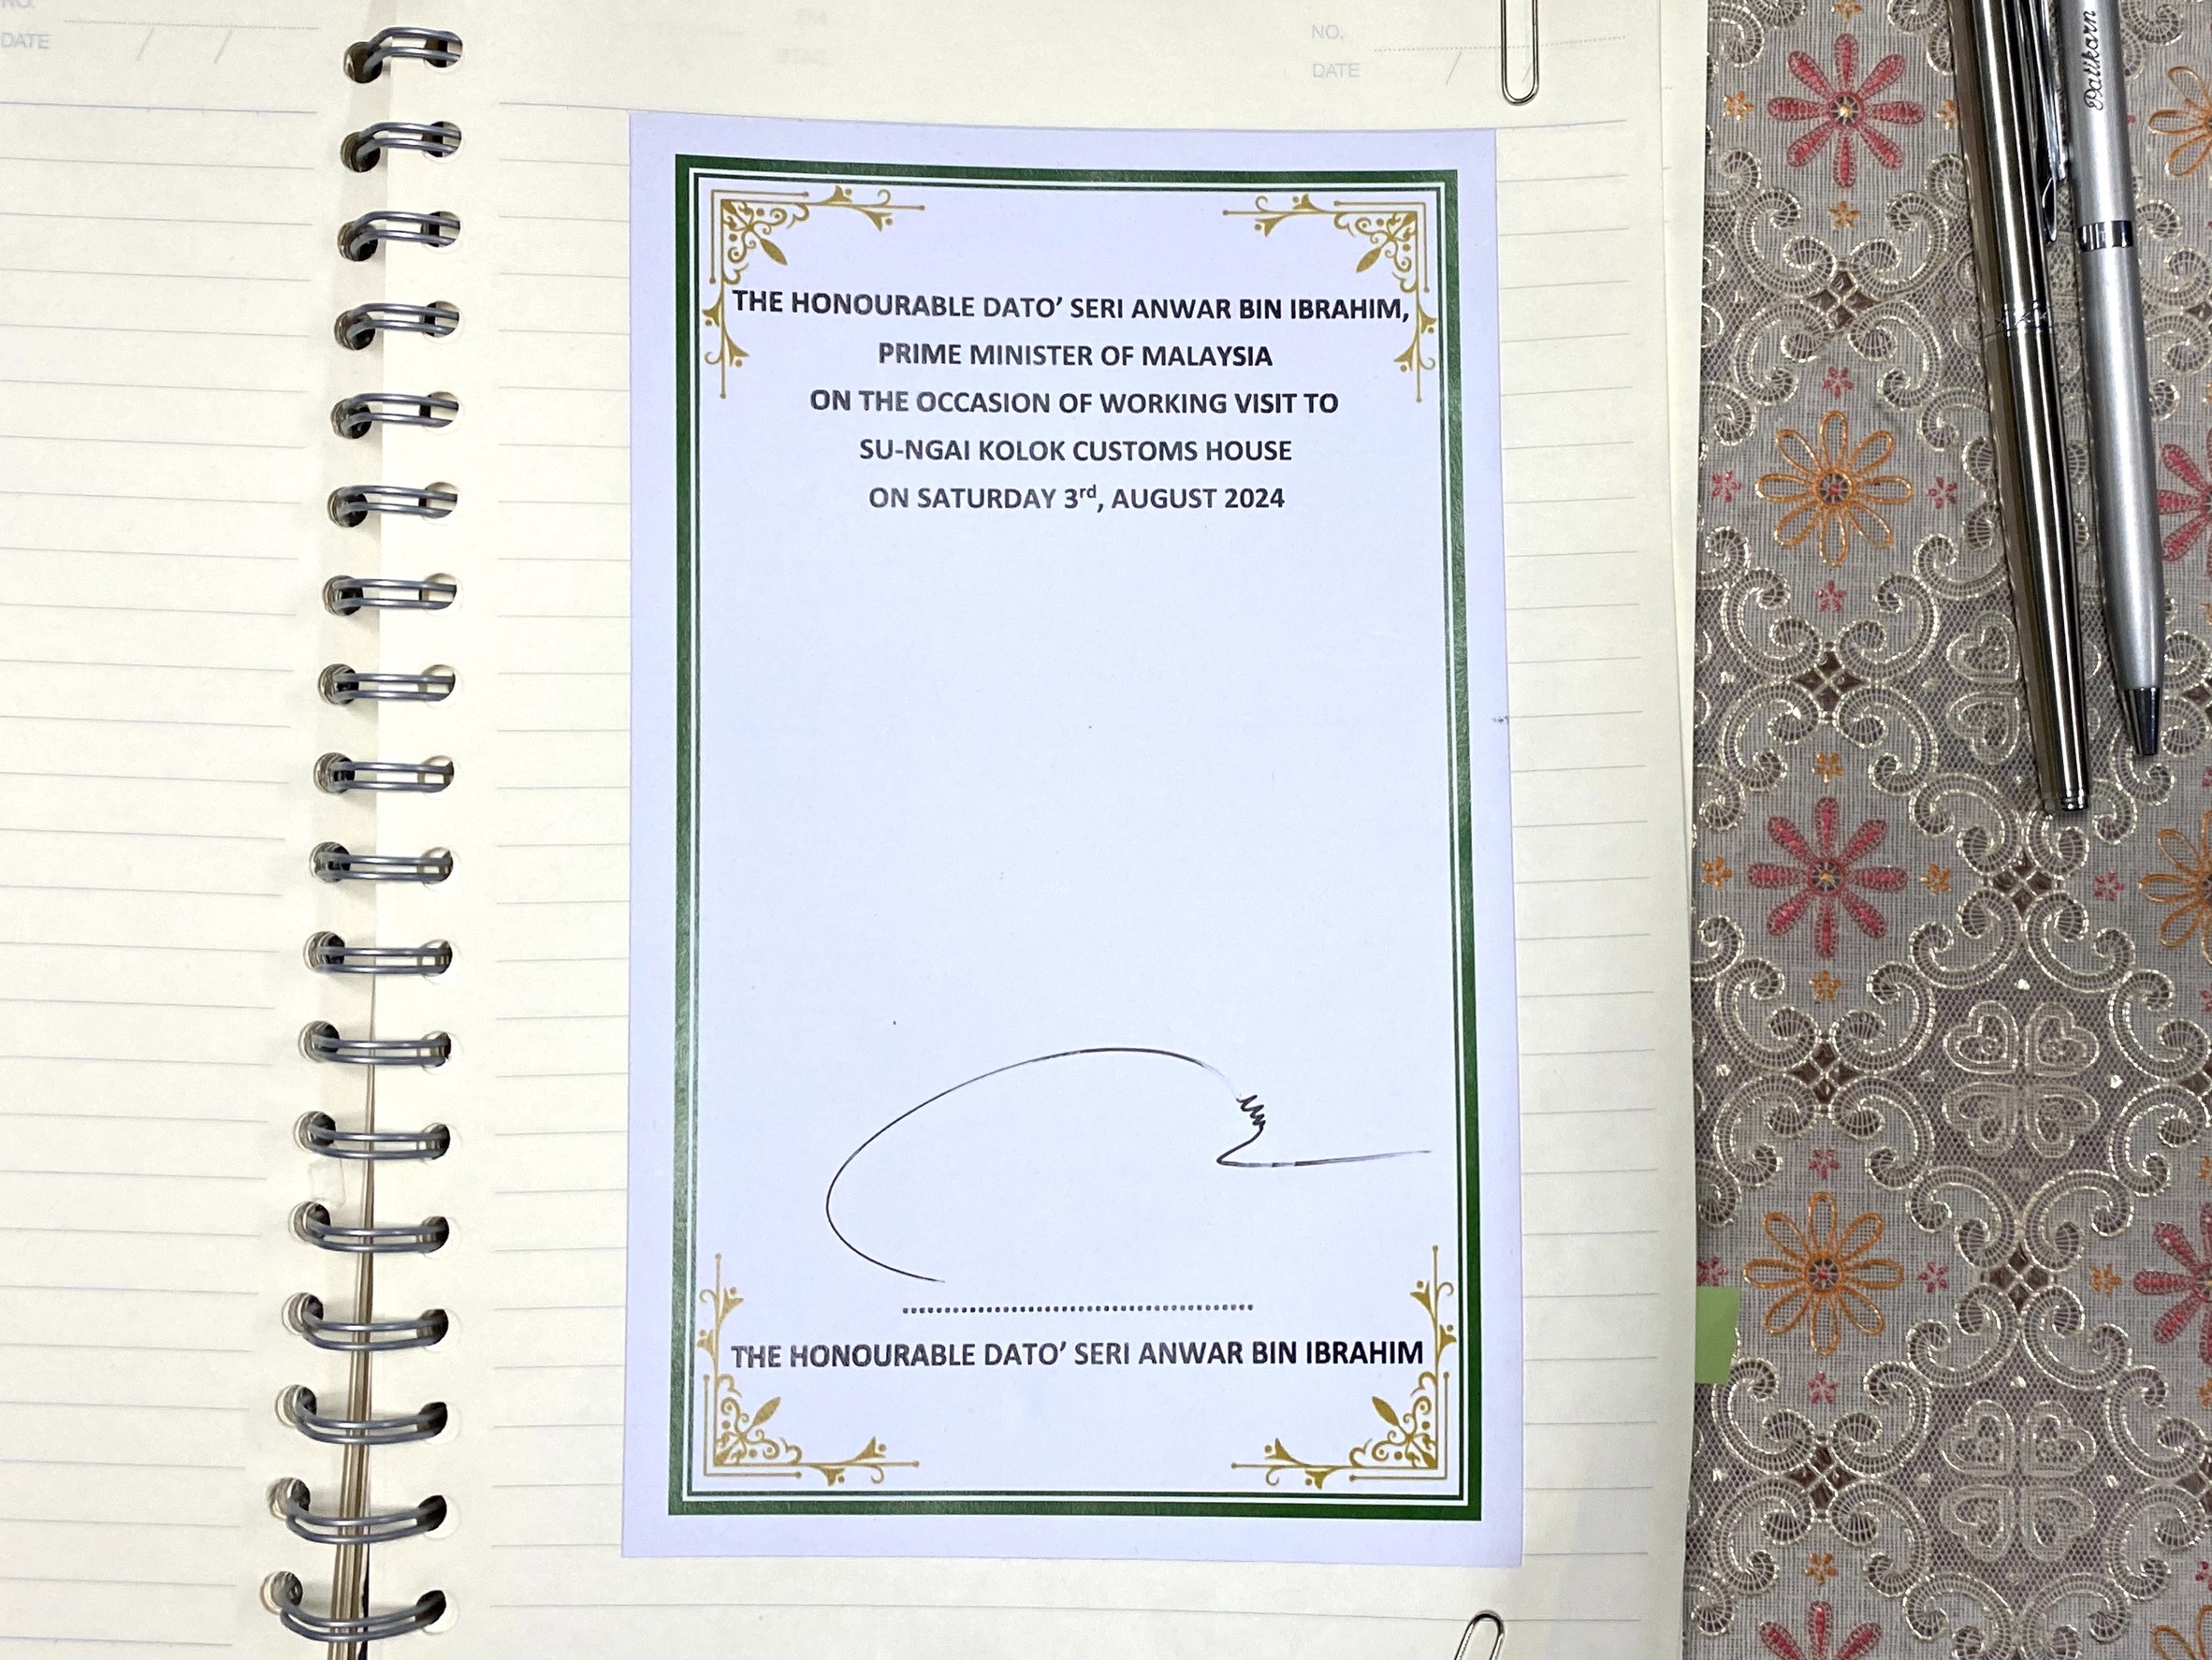 NO.
DATE / /
NO.
DATE /
Patikarn
THE HONOURABLE DATO’ SERI ANWAR BIN IBRAHIM,
PRIME MINISTER OF MALAYSIA
ON THE OCCASION OF WORKING VISIT TO
SU-NGAI KOLOK CUSTOMS HOUSE
ON SATURDAY 3rd, AUGUST 2024
THE HONOURABLE DATO’ SERI ANWAR BIN IBRAHIM